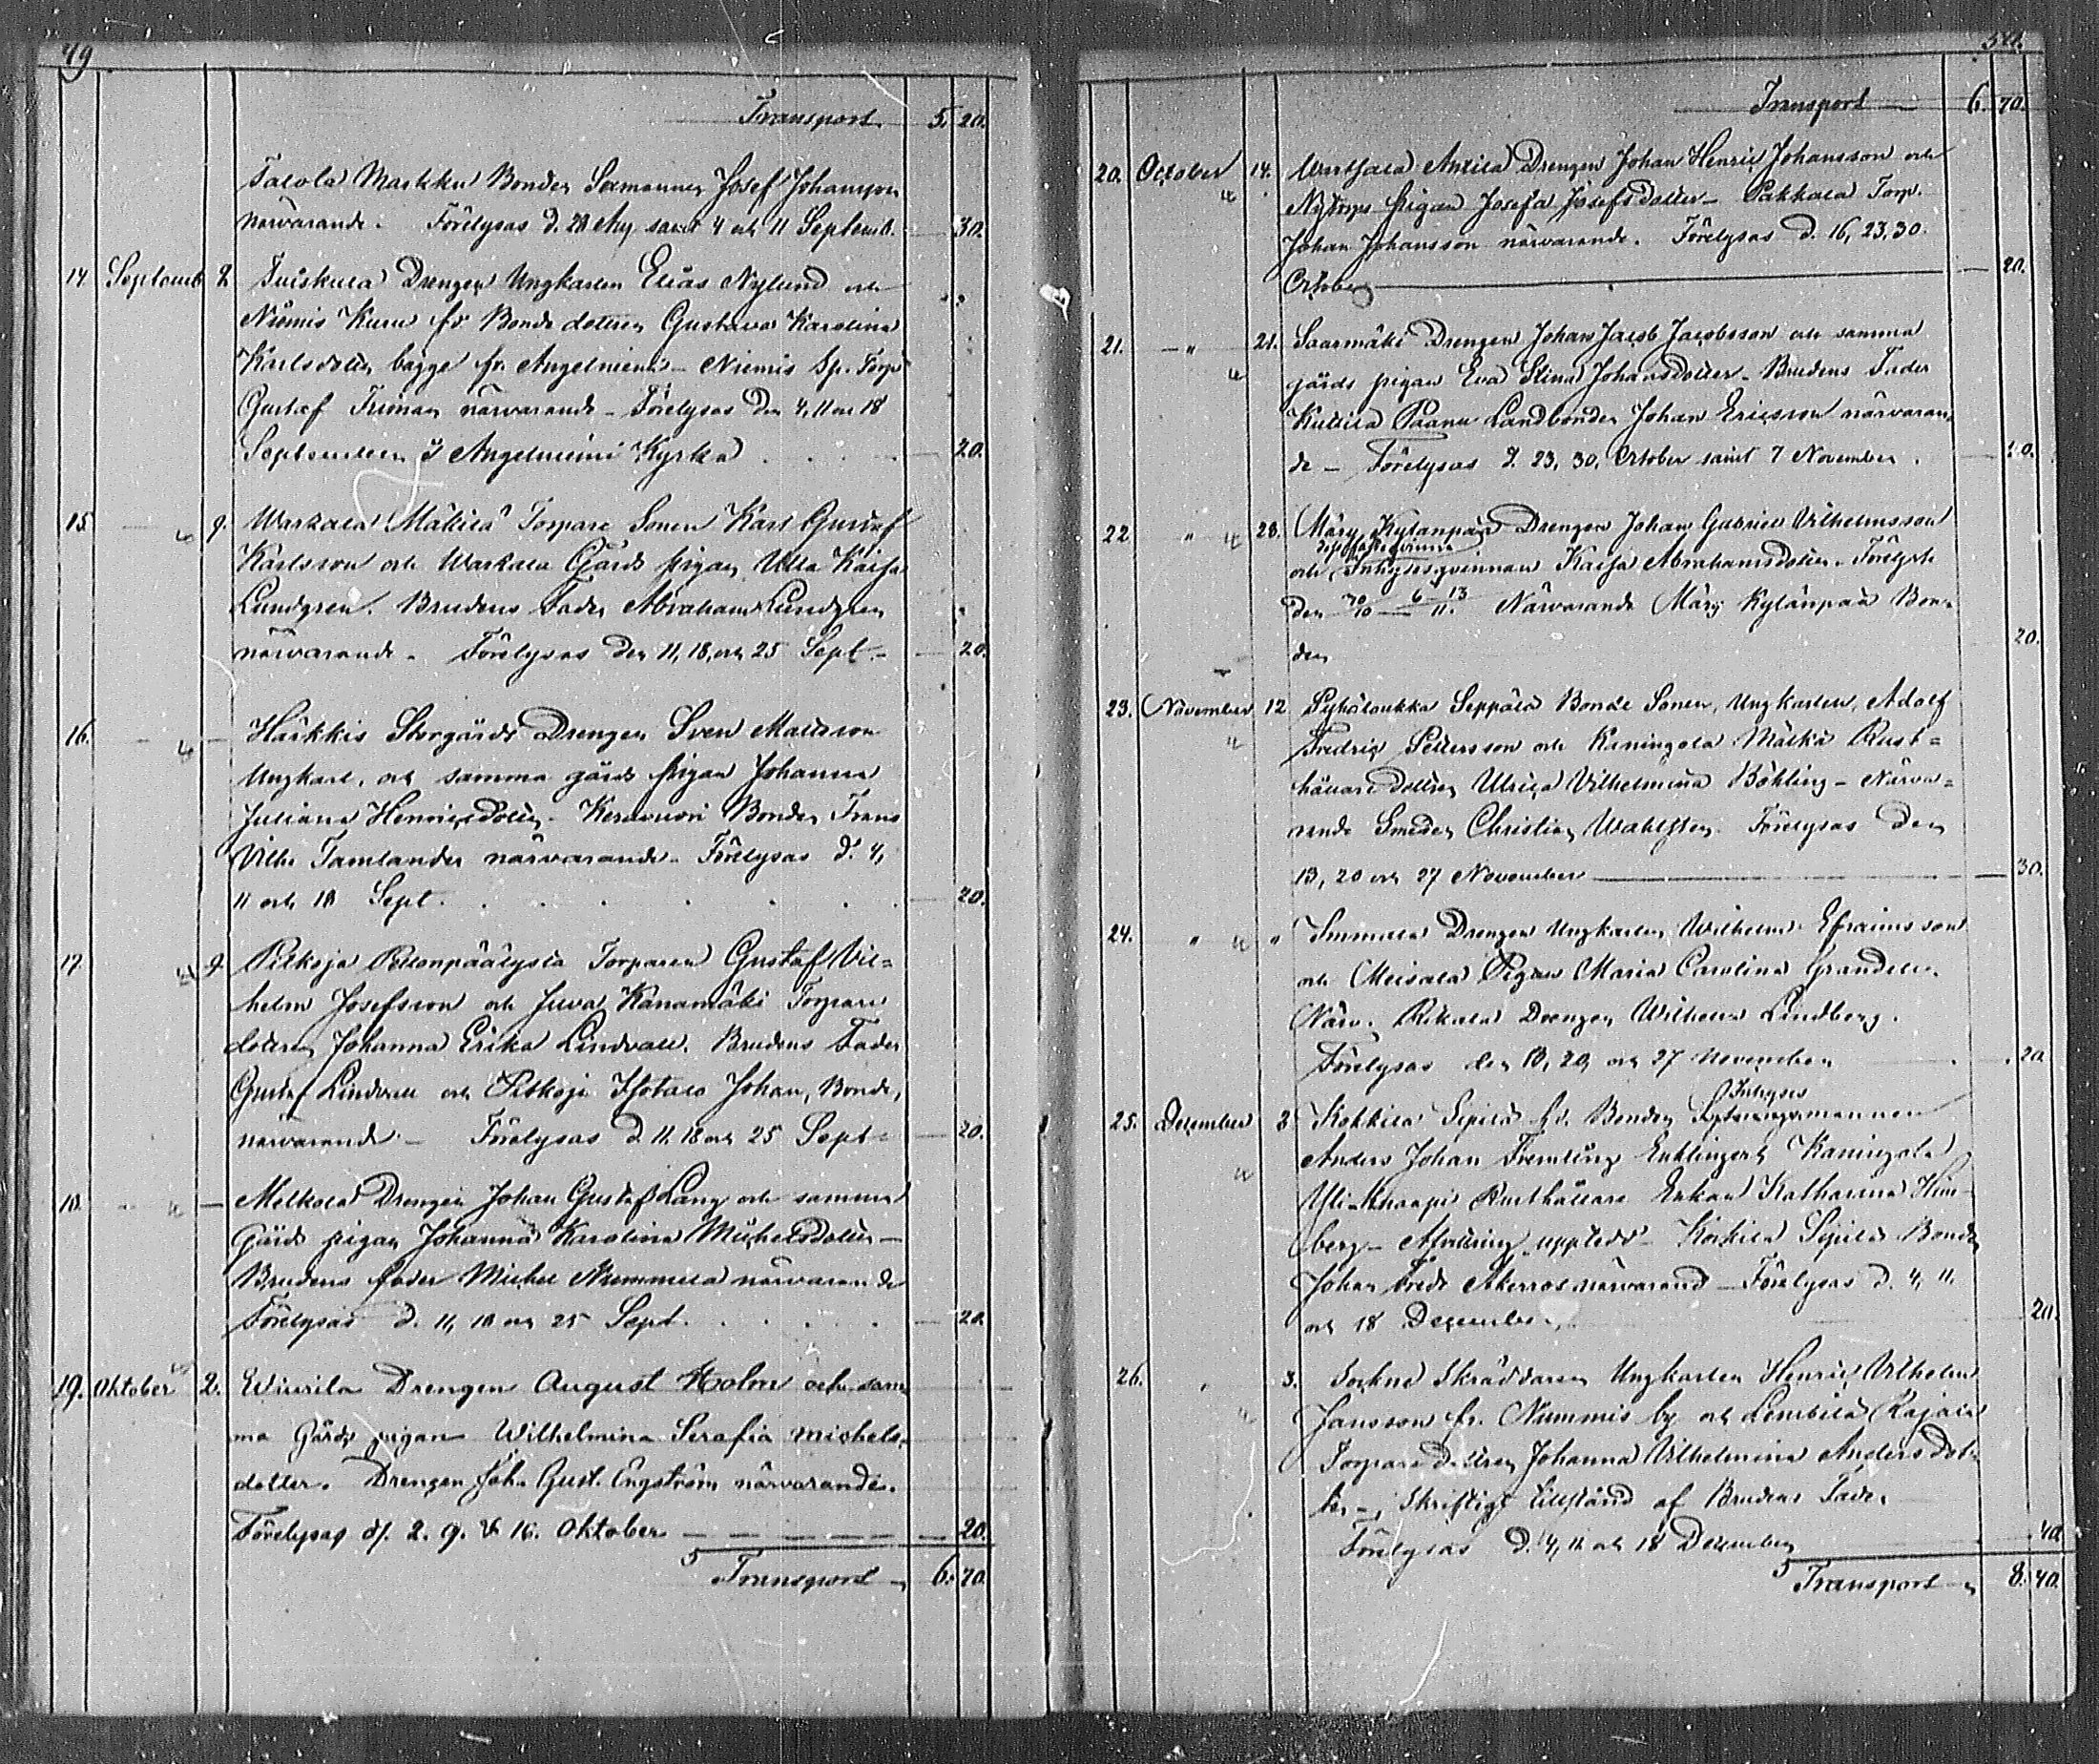 49
Transport 5. 20.
Talola Markku Bonden Sexmannen Josef Johansson
närvarande. Förelysas d. 28 Aug samt 4 och 11 Septemb. 30.
14. Septemb 2 Tuiskula Drengen Ungkarlen Elias Nylund och
Niemis Kuru fd. Bonde dottren Gustava Karolina
Karlsdotter bägge fr. Angelniemi - Niemis
Gustaf närvarande - Förelysas den 4, 11 och 18
September i Angelniemi Kyrka 20.
15. 9. Warkala Mäkilä Torpare Sonen Karl Gustaf
Karlsson och Warkala Gårds pigan Ulla Kaisa
Lundgren. Brudens Fader Abraham Lundgren
närvarande. Förelysas den 11, 18, och 25 Sept. 20.
16. Häkkis Storgårds Drengen Sven Mattsson
Ungkarl, och samma gårds pigan Johanna
Juliana Henricsdotter. Keravuori Bonden Frans
Vilh. Tamlander närvarande. Förelysas d. 4,
11 och 18 Sept. 20.
17. 9. Pitkoja Torparen Gustaf Vil=
helm Josefsson och Juva Kanamäki Torpare
dottren Johanna Erika Lindvall. Brudens Fader
Gustaf Lindvall och Pitkoja Johan, Bonde,
närvarande. - Förelysas d. 11. 18 och 25 Sept. 20.
18. Melkola Drengen Johan Gustaf Lang och samma
Gårds pigan Johanna Karolina Michelsdotter -
Brudens fader Michel Nummela närvarande
Förelysas d. 11, 18 och 25 Sept. 20.
19. Oktober 2. Wiurila Drengen August Holm och sam-
ma Gårds pigan Wilhelmina Serafia Michels-
dotter. Drengen Joh. Gust. Engström närvarande.
Förelysas d. 2. 9. & 16. Oktober 20.
Transport 6. 70.
50.
Transport 6. 70.
20. October 14. Anttila Drengen Johan Henric Johansson och
Nytorps pigan Josefa Josefsdotter - Pakkala Torp.
Johan Johansson närvarande. Förelysas d. 16, 23, 30.
October 20.
21. " 21. Saarmäki Drengen Johan Jacob Jacobsson och samma
gårds pigan Eva Stina Johansdotter - Brudens Fader
Kuttila Paanu Landbonden Johan Ericsson närvaran
de - Förelysas d. 23, 30, October samt 7 November. 20.
22 " 28. Märy Kylänpää Drengen Johan Gabriel Vilhelmsson
och Inhysesqvinnan Kaisa Abrahamsdotter. Förelyst
den 30/10 6-13/11. Närvarande Märy Kylänpää Bon-
den 20.
23. November 12 Pyhäloukka Seppälä Bonde Sonen, Ungkarlen, Adolf
Fredric Pettersson och Kaningola Mälki Rust=
hållare dottren Ulrica Vilhelmina Böhling - Närva=
rande Smeden Christian Wahlsten. Förelysas den
13, 20 och 27 November 30.
24. " " Immala Drengen Ungkarlen Wilhelm Efraimsson
och Meisala Pigan Maria Carolina Grandell.
Närv. Rikala Drengen Wilhelm Lindberg.
Förelysas den 13, 20, och 27 November 20
25. December 3 Kokkila Sipilä fd. Bonden Inhyses mannen
Anders Johan Fremling Enklingen & Kaningola
Yli-Knaapi Rusthållare Enkan Katharina Him-
berg - Afvittring uppvist - Kokkila Sipilä Bonden
Johan Fredr. Akerros närvarand - Förelysas d. 4, 11
och 18 December 20.
26. " 3. Sockne Skräddaren Ungkarlen Henric Vilhelm
Jansson fr. Nummis by och Lembilä Rajala
Torpare Dottren Johanna Vilhelmina Anders dot-
ter - Skriftligt tillstånd af Brudens Fader
Förelysas d. 4, 11 och 18 December 40
Transport 8. 40.